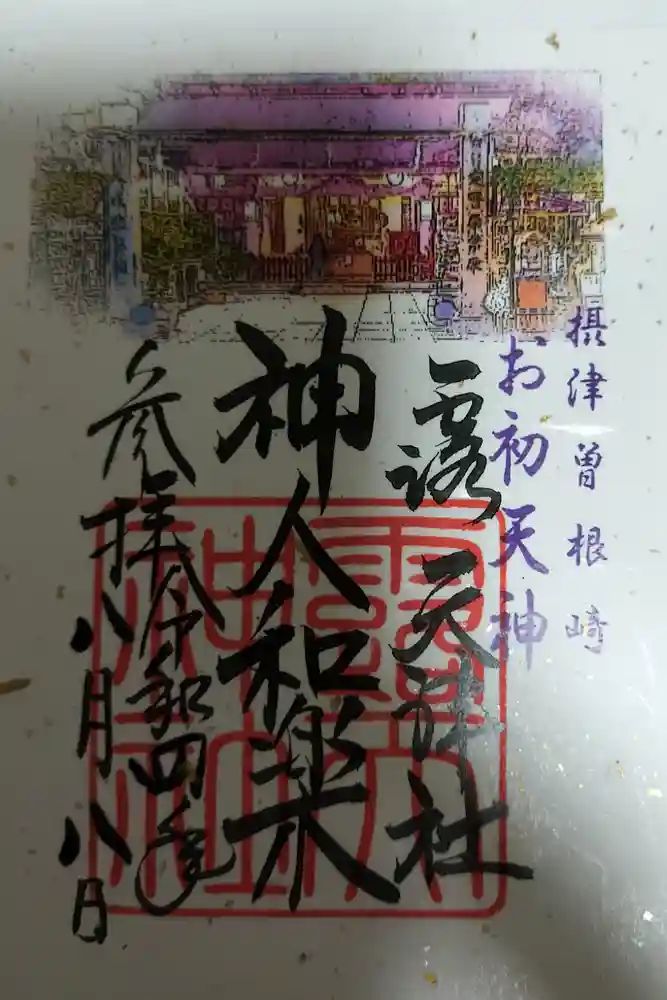 摂津曽根崎
お初天神
露天神社
神人和楽
参拝令和四年
八月八日